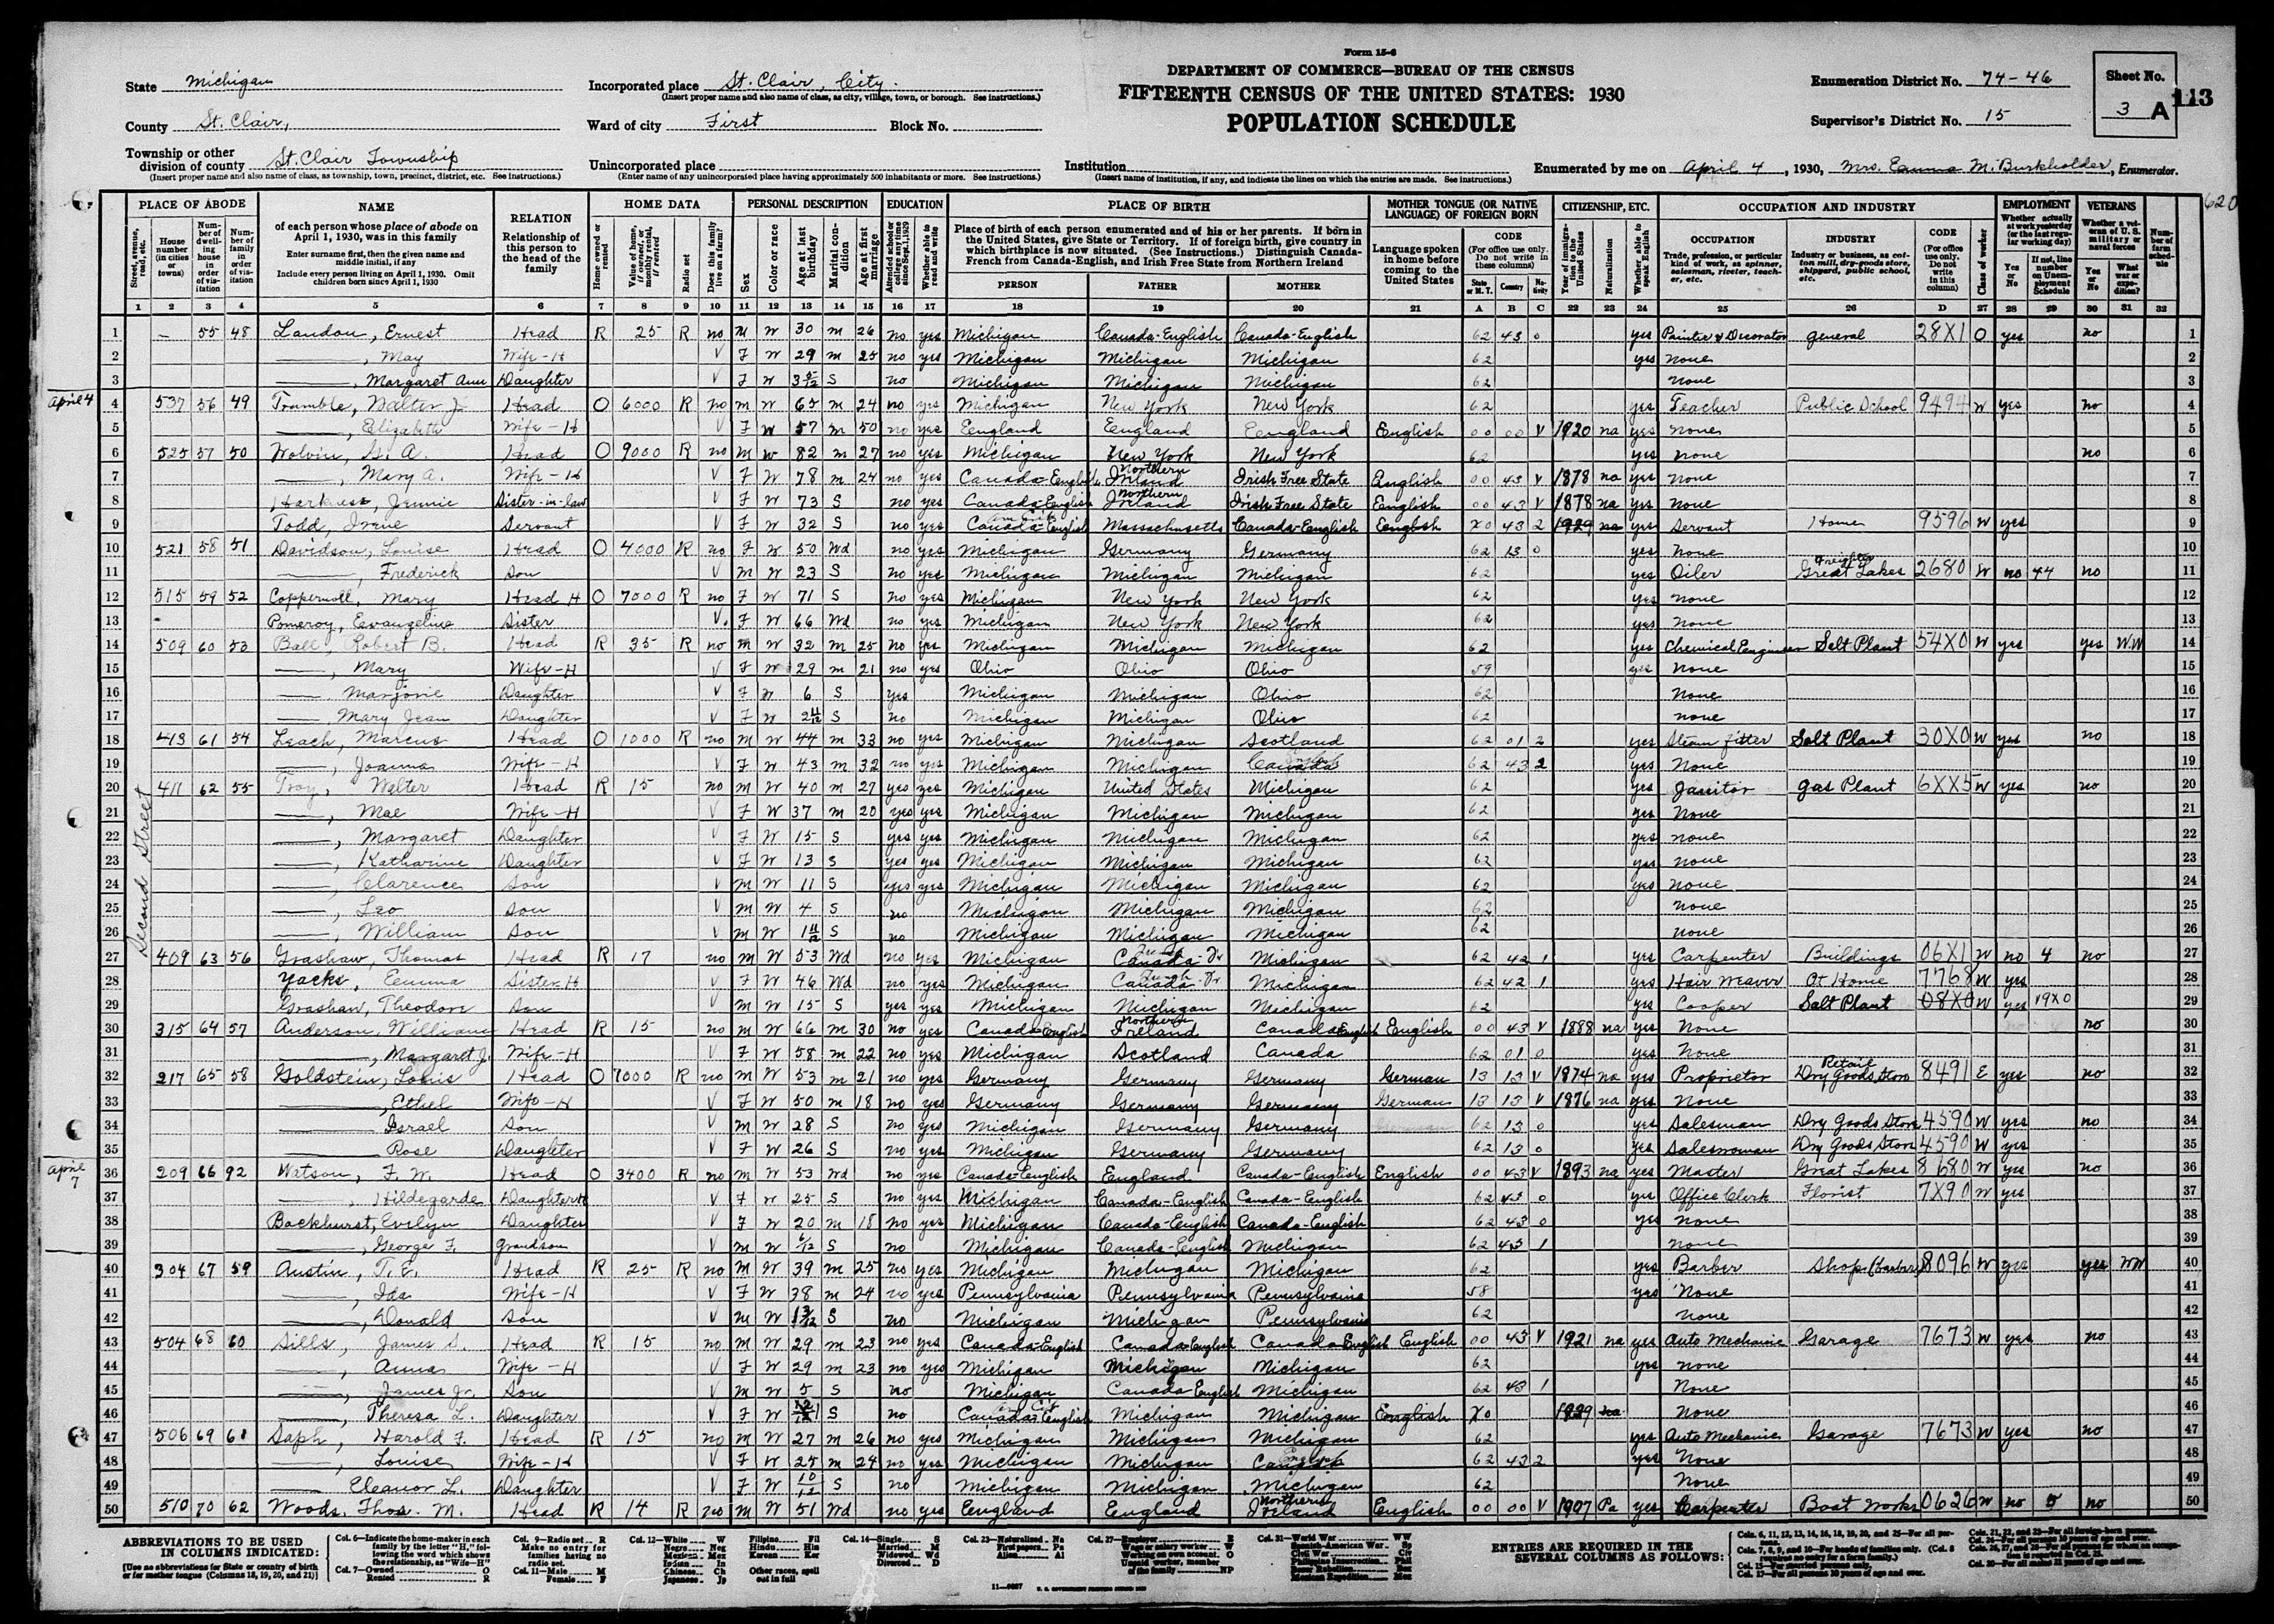 Form 15-6
DEPARTMENT OF COMMERCE—BUREAU OF THE CENSUS
FIFTEENTH CENSUS OF THE UNITED STATES: 1930
POPULATION SCHEDULE
State Michigan
County St. Clair,
Township or other division of county St. Clair Township
(Insert proper name and also name of class, as township, town, precinct, district, etc. See instructions.)
Incorporated place St. Clair, City.
(Insert proper name and also name of class, as city, village, town, or borough. See instructions.)
Ward of city First Block No.
Unincorporated place
(Enter name of any unincorporated place having approximately 500 inhabitants or more. See instructions.)
Institution
(Insert name of institution, if any, and indicate the lines on which the entries are made. See instructions.)
Enumeration District No. 74-46
Supervisor's District No. 15
Sheet No. 3 A
113
Enumerated by me on April 4, 1930, Mrs. Emma M. Burkholder, Enumerator.
620
PLACE OF ABODE NAME RELATION HOME DATA PERSONAL DESCRIPTION EDUCATION PLACE OF BIRTH MOTHER TONGUE (OR NATIVE LANGUAGE) OF FOREIGN BORN CITIZENSHIP, ETC. OCCUPATION AND INDUSTRY EMPLOYMENT VETERANS
Second Street
1 — 55 48 Landon, Ernest Head R 25 R no M W 30 M 26 no yes Michigan Canada-English Canada-English 62 43 0 yes Painter & Decorator general 28X1 O yes no 1
2 ——, May Wife-H V F W 29 M 25 no yes Michigan Michigan Michigan 62 yes none 2
3 ——, Margaret Ann Daughter V F W 3 5/12 S no Michigan Michigan Michigan 62 none 3
April 4
4 537 56 49 Tramble, Walter J. Head O 6000 R no M W 65 M 24 no yes Michigan New York New York 62 yes Teacher Public School 9494 W yes no 4
5 ——, Elizabeth Wife-H V F W 57 M 50 no yes England England England English 00 00 V 1920 na yes none 5
6 525 57 50 Wolvin, G. A. Head O 9000 R no M W 82 M 27 no yes Michigan New York New York 62 yes none no 6
7 ——, Mary A. Wife-H V F W 78 M 24 no yes Canada-English Northern Ireland Irish Free State English 00 43 V 1878 na yes none 7
8 Harkness, Jennie Sister-in-law V F W 73 S no yes Canada-English Northern Ireland Irish Free State English 00 43 V 1878 na yes none 8
9 Todd, Irene Servant V F W 32 S no yes Canada-English Massachusetts Canada-English English X0 43 2 1929 na yes Servant Home 9596 W yes 9
10 521 58 51 Davidson, Louise Head O 4000 R no F W 50 Wd no yes Michigan Germany Germany 62 13 0 yes none 10
11 ——, Frederick Son V M W 23 S no yes Michigan Michigan Michigan 62 yes Oiler Freighter Great Lakes 2680 W no 44 no 11
12 515 59 52 Coppernoll, Mary Head H O 7000 R no F W 71 S no yes Michigan New York New York 62 yes none 12
13 Pomeroy, Evangeline Sister V F W 66 Wd no yes Michigan New York New York 62 yes none 13
14 509 60 53 Ball, Robert B. Head R 35 R no M W 32 M 25 no yes Michigan Michigan Michigan 62 yes Chemical Engineer Salt Plant 54X0 W yes yes WW 14
15 ——, Mary Wife-H V F W 29 M 21 no yes Ohio Ohio Ohio 59 yes none 15
16 —— Marjorie Daughter V F W 6 S yes Michigan Michigan Ohio 62 none 16
17 —— Mary Jean Daughter V F W 2 11/12 S no Michigan Michigan Ohio 62 none 17
18 413 61 54 Leach, Marcus Head O 1000 R no M W 44 M 33 no yes Michigan Michigan Scotland 62 01 2 yes Steam fitter Salt Plant 30X0 W yes no 18
19 ——, Joanna Wife-H V F W 43 M 32 no yes Michigan Michigan Canada 62 43 2 yes None 19
20 411 62 55 Troy, Walter Head R 15 no M W 40 M 27 yes yes Michigan United States Michigan 62 yes Janitor Gas Plant 6XX5 W yes no 20
21 ——, Mae Wife-H V F W 37 M 20 yes yes Michigan Michigan Michigan 62 yes None 21
22 ——, Margaret Daughter V F W 15 S yes yes Michigan Michigan Michigan 62 yes none 22
23 ——, Katharine Daughter V F W 13 S yes yes Michigan Michigan Michigan 62 yes none 23
24 ——, Clarence Son V M W 11 S yes yes Michigan Michigan Michigan 62 yes none 24
25 ——, Leo Son V M W 4 S no Michigan Michigan Michigan 62 none 25
26 ——, William Son V M W 1 11/12 S no Michigan Michigan Michigan 62 none 26
27 409 63 56 Grashaw, Thomas Head R 17 no M W 53 Wd no yes Michigan Canada-Fr Michigan 62 42 1 yes Carpenter Buildings 06X1 W no 4 no 27
28 Yacks, Emma Sister H V F W 46 Wd no yes Michigan Canada-Fr Michigan 62 42 1 yes Hair Weaver At Home 7768 W yes 28
29 Grashaw, Theodore Son V M W 15 S yes yes Michigan Michigan Michigan 62 yes Cooper Salt Plant 08X0 W yes 19X0 29
30 315 64 57 Anderson, William Head R 15 no M W 66 M 30 no yes Canada-English Northern Ireland Canada-English English 00 43 V 1888 na yes None no 30
31 ——, Margaret J. Wife-H V F W 58 M 22 no yes Michigan Scotland Canada 62 01 0 yes None 31
32 217 65 58 Goldstein, Louis Head O 7000 R no M W 53 M 21 no yes Germany Germany Germany German 13 13 V 1874 na yes Proprietor Retail Dry Goods Store 8491 E yes no 32
33 ——, Ethel Wife-H V F W 50 M 18 no yes Germany Germany Germany German 13 13 V 1876 na yes None 33
34 —— Israel Son V M W 28 S no yes Michigan Germany Germany 62 13 0 yes Salesman Dry Goods Store 4590 W yes no 34
35 —— Rose Daughter V F W 26 S no yes Michigan Germany Germany 62 13 0 yes Saleswoman Dry Goods Store 4590 W yes 35
April 7
36 209 66 92 Watson, F. W. Head O 3400 R no M W 53 Wd no yes Canada-English England Canada-English English 00 43 V 1893 na yes Master Great Lakes 8680 W yes no 36
37 ——, Hildegarde Daughter H V F W 25 S no yes Michigan Canada-English Canada-English 62 43 0 yes Office Clerk Florist 7X90 W yes 37
38 Backhurst, Evelyn Daughter V F W 20 M 18 no yes Michigan Canada-English Canada-English 62 43 0 yes none 38
39 ——, George F. Grandson V M W 6/12 S no Michigan Canada-English Michigan 62 43 1 none 39
40 304 67 59 Austin, T. E. Head R 25 R no M W 39 M 25 no yes Michigan Michigan Michigan 62 yes Barber Shop (Barber) 8096 W yes yes WW 40
41 ——, Ida Wife-H V F W 38 M 24 no yes Pennsylvania Pennsylvania Pennsylvania 58 yes None 41
42 ——, Donald Son V M W S no Michigan Michigan Pennsylvania 62 none 42
43 504 68 60 Sills, James S. Head R 15 no M W 29 M 23 no yes Canada-English Canada-English Canada-English English 00 43 V 1921 na yes Auto Mechanic Garage 7673 W yes no 43
44 ——, Anna Wife-H V F W 29 M 23 no yes Michigan Michigan Michigan 62 yes none 44
45 ——, James Jr. Son V M W 5 S no Michigan Canada English Michigan 62 43 1 None 45
46 ——, Theresa L. Daughter V F W S no Canada-English Michigan Michigan English X0 1929 na None 46
47 506 69 61 Saph, Harold F. Head R 15 no M W 27 M 26 no yes Michigan Michigan Michigan 62 yes Auto Mechanic Garage 7673 W yes no 47
48 ——, Louise Wife-H V F W 25 M 24 no yes Michigan Michigan Canada 62 43 2 yes None 48
49 —— Eleanor L. Daughter V F W 10/12 S no Michigan Michigan Michigan 62 None 49
50 510 70 62 Woods, Thos. M. Head R 14 R no M W 51 Wd no yes England England Northern Ireland English 00 00 V 1907 Pa yes Carpenter Boat Works 0626 W no 5 no 50
ABBREVIATIONS TO BE USED IN COLUMNS INDICATED:
[Use no abbreviations for State or country of birth or for mother tongue (Columns 18, 19, 20, and 21)]
ENTRIES ARE REQUIRED IN THE SEVERAL COLUMNS AS FOLLOWS: